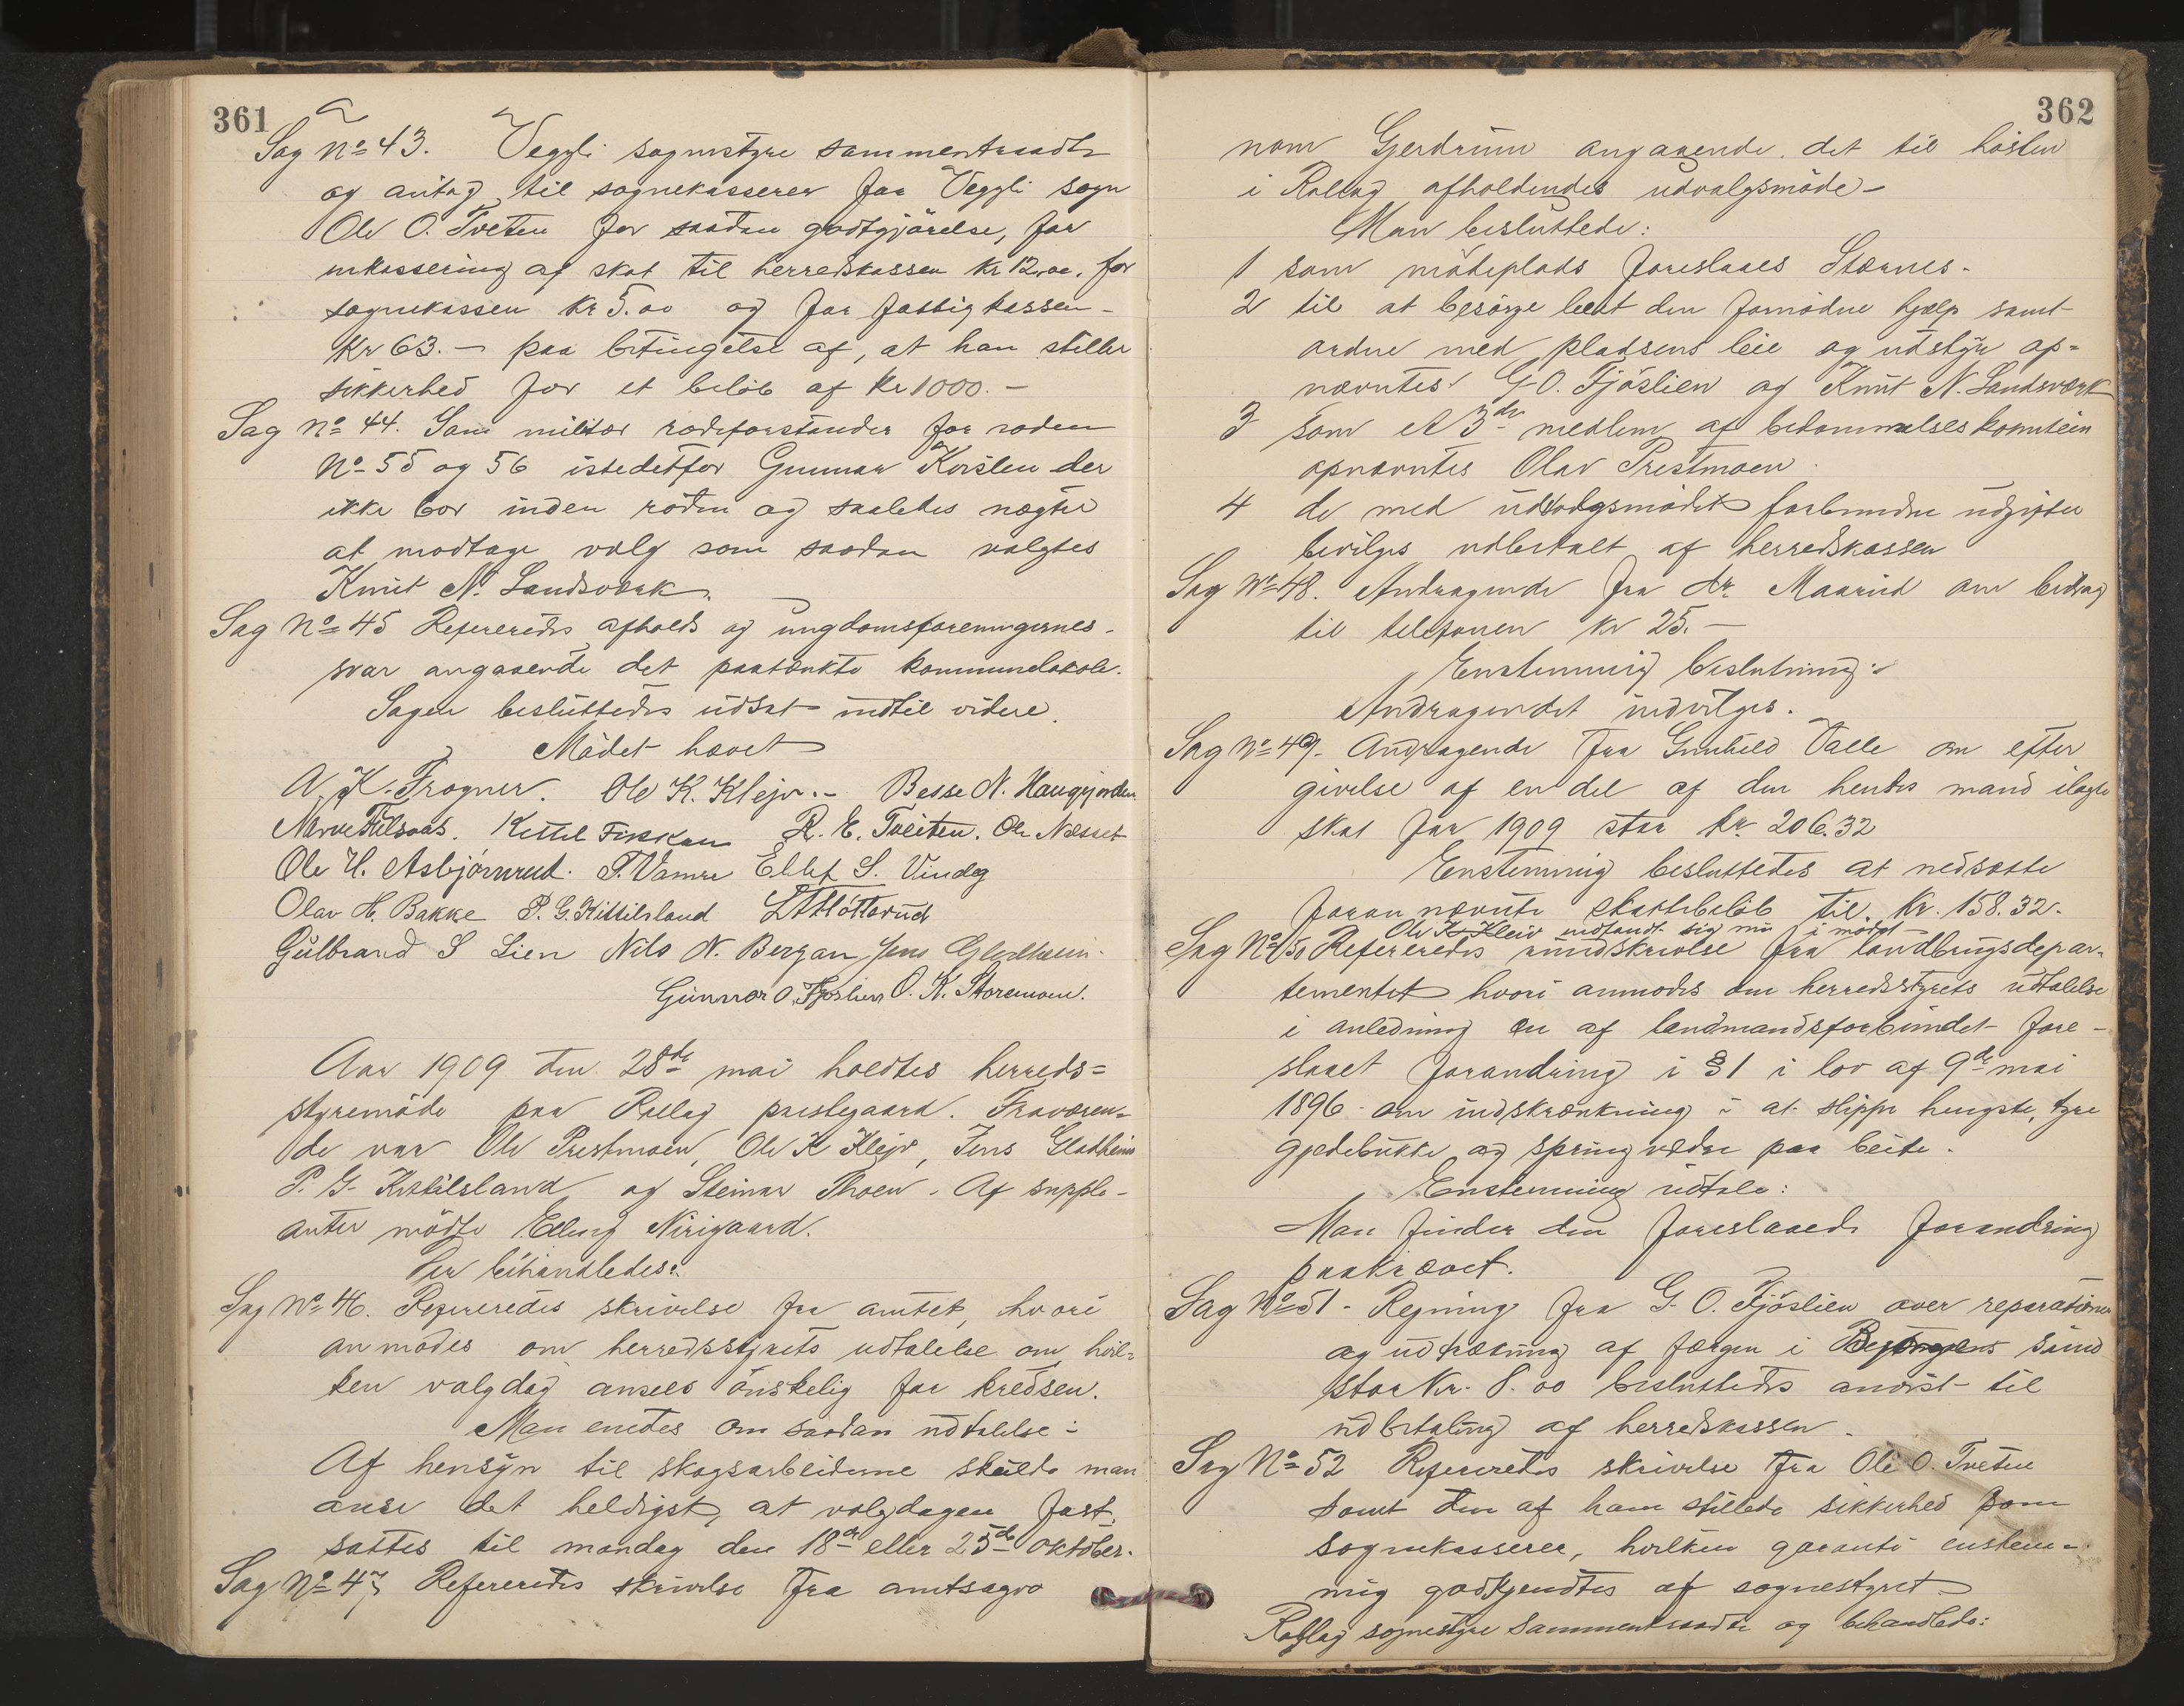 361
Sag No 43. Veggli sognestyre sammentraadte
og antog til sognekasserer for Veggli sogn
Ole O. Tveten for saadan godtgjörelse, for
inkassering af skat til herredskassen kr 12.00, for
sognekassen kr 5.00 og for fattigkassen
kr 63.- paa betingelse af, at han stiller
sikkerhed for et belöb af kr 1000.-
Sag No 44. Som militær rodeforstander for roden
No 55 og 56 istedetfor Gunnar Kvislen der
ikke bor inden roden og saaledes nægter
at modtage valg som saadan valgtes
Knut N. Landsværk.
Sag No 45 Refereredes afholds og ungdomsforeningernes
svar angaaende det paatænkte kommunelokale.
Sagen besluttedes udsat indtil videre.
Mödet hævet
A. K. Frogner. Ole K. Klejv.- Besse N. Haugjorden
Narve Fulsaas. Kittel Fiskan R. E. Tveiten. Ole Næsset
Ole H. Asbjörnrud. T. Vamre Ellef S. Vindeg
Olav H. Bakke P. G. Kittilsland
Gulbrand S Lien Nils N. Bergan Jens Gladheim
Gunnar O. Fjöslien O. K. Storemoen.
Aar 1909 den 28de mai holdtes herreds=
styremöde paa Rollag prestegaard. Fraværen-
de var Ole Prestmoen, Ole K Klejv, Jens Gladheim
P. G. Kittilsland og Steinar Thoen. Af supple-
anter mödte Elling Nirigaard.
Der behandledes:
Sag No 46. Refereredes skrivelse fra amtet, hvori
anmodes om herredsstyrets udtalelse om hvil-
ken valgdag ansees önskelig for kredsen.
Man enedes om saadan udtalelse:
Af hensyn til skogsarbeiderne skulde man
anse det heldigst, at valgdagen fast.
sættes til mandag den 18de eller 25de oktober.
Sag No 47, Refereredes skrivelse fra amtsagro
362
nom Gjerdrum angaaende det til hösten
i Rollag afholdendes udvalgsmöde-
Man besluttede:
1 som mödeplads foreslaaes Stærnes.
2 til at besörge leiet den fornödne hjælp samt
ordne med pladsens leie og udstyr op=
nævntes G. O. Fjöslien og Knut N. Landsværk
3 som et 3de medlem af bedömmelseskomiteen
opnævntes Olav Prestmoen.
4 de med udvalgsmödet forbundne udgifter
bevilges udbetalt af herredskassen
Sag No 48. Andragende fra dr. Maarud om bidrag
til telefonen kr 25.-
Enstemmig beslutning:
Andragendet indvilges.
Sag No 49. Andragende fra Gunhild Valle om efter
givelse af en del af den hendes mand ilagte
skat for 1909 stor kr 206.32
Enstemmig besluttedes at nedsætte
foran nævnte skattebelöb til kr. 158.32.
Ole K Kleiv indfandt sig nu i mödet
Sag No 50 Refereredes rundskrivelse fra landbrugsdepar-
tementet hvori anmodes om herredsstyrets udtalelse
i anledning en af landmandsforbundet fore-
slaaet forandring i § 1 i lov af 9de mai
1896 om indskrænkning i at slippe hengste, tyre
gjedebukke og springvædre paa beite.
Enstemmig udtale:
Man finder den foreslaaede forandring
paakrævet.
Sag No 51 - Regning fra G. O. Fjöslien over reparationer
og udtrækning af færgen i sund
stor kr. 8.00 besluttedes anvist til
udbetaling af herredskassen.
Sag No 52 Refereredes skrivelse fra Ole O. Tveten
samt den af ham stillede sikkerhed som
sognekasserer, hvilken garanti enstem-
mig godkjendtes af sognestyret
Rollag sognestyre sammentraadte og behandlede: